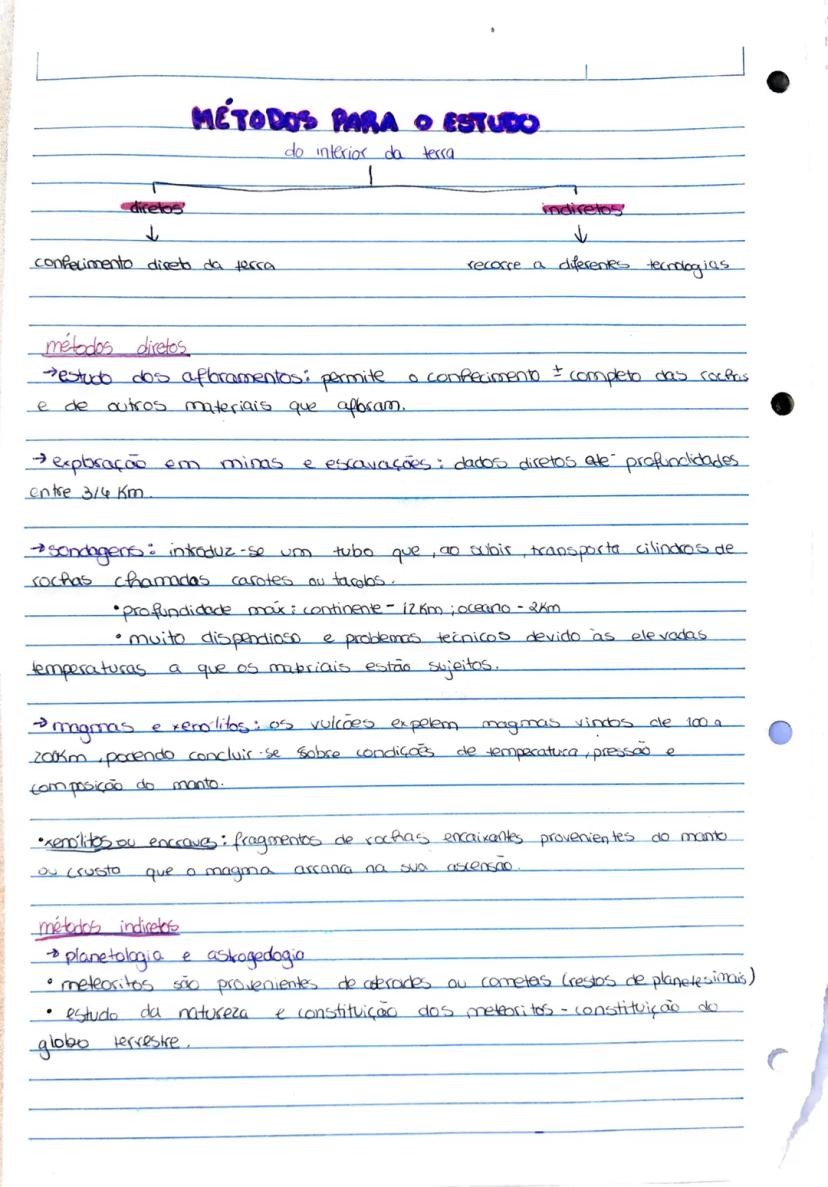 MÉTODOS PARA O ESTUDO
do interior da terra
diretos
indiretos
↓
↓
conhecimento direto da terra
recorre a diferentes tecnologias
métodos diretos
→estudo dos afloramentos: permite o conhecimento ± completo das rochas
e de outros materiais que afloram.
→ exploração em minas e escavações: dados diretos até profundidades
entre 3/4 Km.
→ sondagens: introduz-se um tubo que, ao subir, transporta cilindros de
rochas chamadas carotes ou tarolos.
•profundidade máx: continente - 12Km; oceano - 2Km
• muito dispendioso e problemas técnicos devido às elevadas
temperaturas a que os materiais estão sujeitos.
→ magmas e xenólitos: os vulcões expelem magmas vindos de 100 a
200Km, podendo concluir-se sobre condições de temperatura, pressão e
composição do manto.
•xenólitos ou encraves: fragmentos de rochas encaixantes provenientes do manto
ou crusta que o magma arranca na sua ascensão.
métodos indiretos
→ planetologia e astrogeologia
• meteoritos são provenientes de asteroides ou cometas (restos de planetesimais)
• estudo da natureza e constituição dos meteoritos - constituição do
globo terrestre.